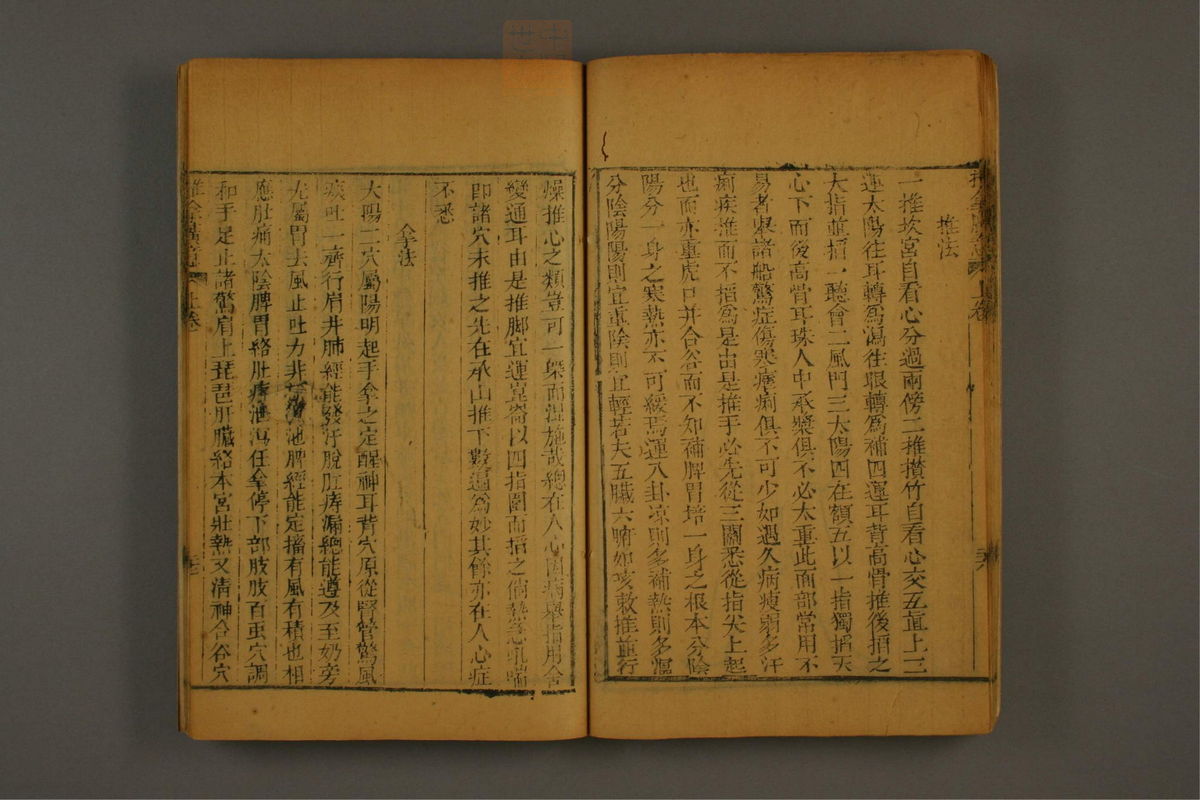 推法
一推坎宮自看心分過兩傍二推攅竹自看心交互直上三
運太陽往耳轉爲瀉往眼轉爲補四運耳背高骨推後掐之
大指並掐一聽會二風門三太陽四在額五以一指獨掐天
心下而後高骨耳珠人中承漿俱不必太重此面部常用不
易者與諸般驚症傷寒瘧痢俱不可少如遇久病瘦弱多汗
痢疾推而不掐爲是由是推手必先從三關悉從指尖上起
也而亦重虎口并合谷而不知補脾胃培一身之根本分陰
陽分一身之寒熱亦不可緩焉運八卦凉則多補熱則多瀉
分陰陽陽則宜重陰則宜輕若夫五臟六腑如咳嗽推並行
燥推心之類豈可一槩而混施哉總在人心因病舉指用舍
變通耳由是推脚宜運崑崙以四指圍而掐之倘熱急吼喘
即諸穴未推之先在承山推下數遍爲妙其餘亦在人心症
不悉
拿法
太陽二穴屬陽明起手拿之定醒神耳背穴原從腎管驚風
痰吐一齊行肩井肺經能發汗脫肛痔漏總能遵及至奶旁
尤屬胃去風止吐力非輕曲池脾經能定搐有風有積也相
應肚痛太陰脾胃絡肚疼泄瀉任拿停下部肢肢百虫穴調
和手足止諸驚肩上琵琶肝臟絡本宮壯熱又淸神合谷穴
推拿廣意
上卷